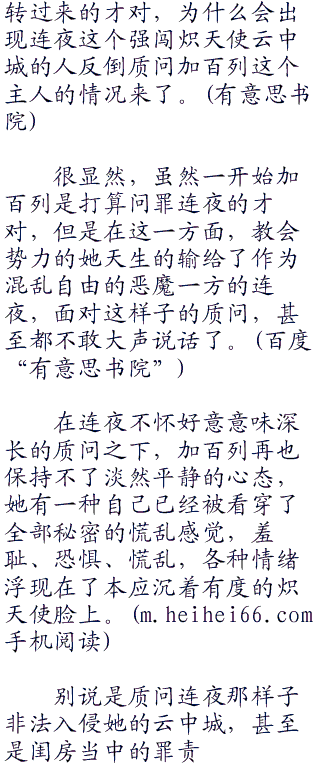 转过来的才对，为什么会出
现连夜这个强闯炽天使云中
城的人反倒质问加百列这个
主人的情况来了。(有意思书
院)
很显然，虽然一开始加
百列是打算问罪连夜的才
对，但是在这一方面，教会
势力的她天生的输给了作为
混乱自由的恶魔一方的连
夜，面对这样子的质问，甚
至都不敢大声说话了。(百度
“有意思书院”)
在连夜不怀好意意味深
长的质问之下，加百列再也
保持不了淡然平静的心态，
她有一种自己已经被看穿了
全部秘密的慌乱感觉，羞
耻、恐惧、慌乱，各种情绪
浮现在了本应沉着有度的炽
天使脸上。(m.heihei66.com
手机阅读)
别说是质问连夜那样子
非法入侵她的云中城，甚至
是闺房当中的罪责